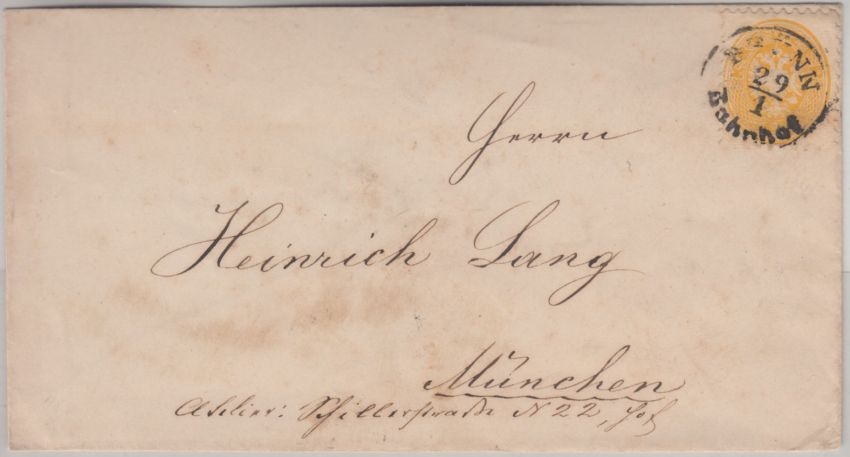 BRÜNN
29
1
Bahnhof
Herrn
Heinrich Lang
München
Atelier: Schillerstraße N 22, Hof